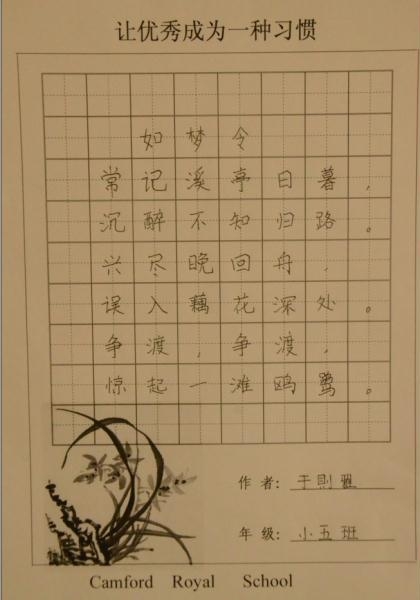 让优秀成为一种习惯
如梦令
常记溪亭日暮，
沉醉不知归路。
兴尽晚回舟，
误入藕花深处。
争渡，争渡，
惊起一滩鸥鹭。
作者：于则雅
年级：小五班
Camford Royal School